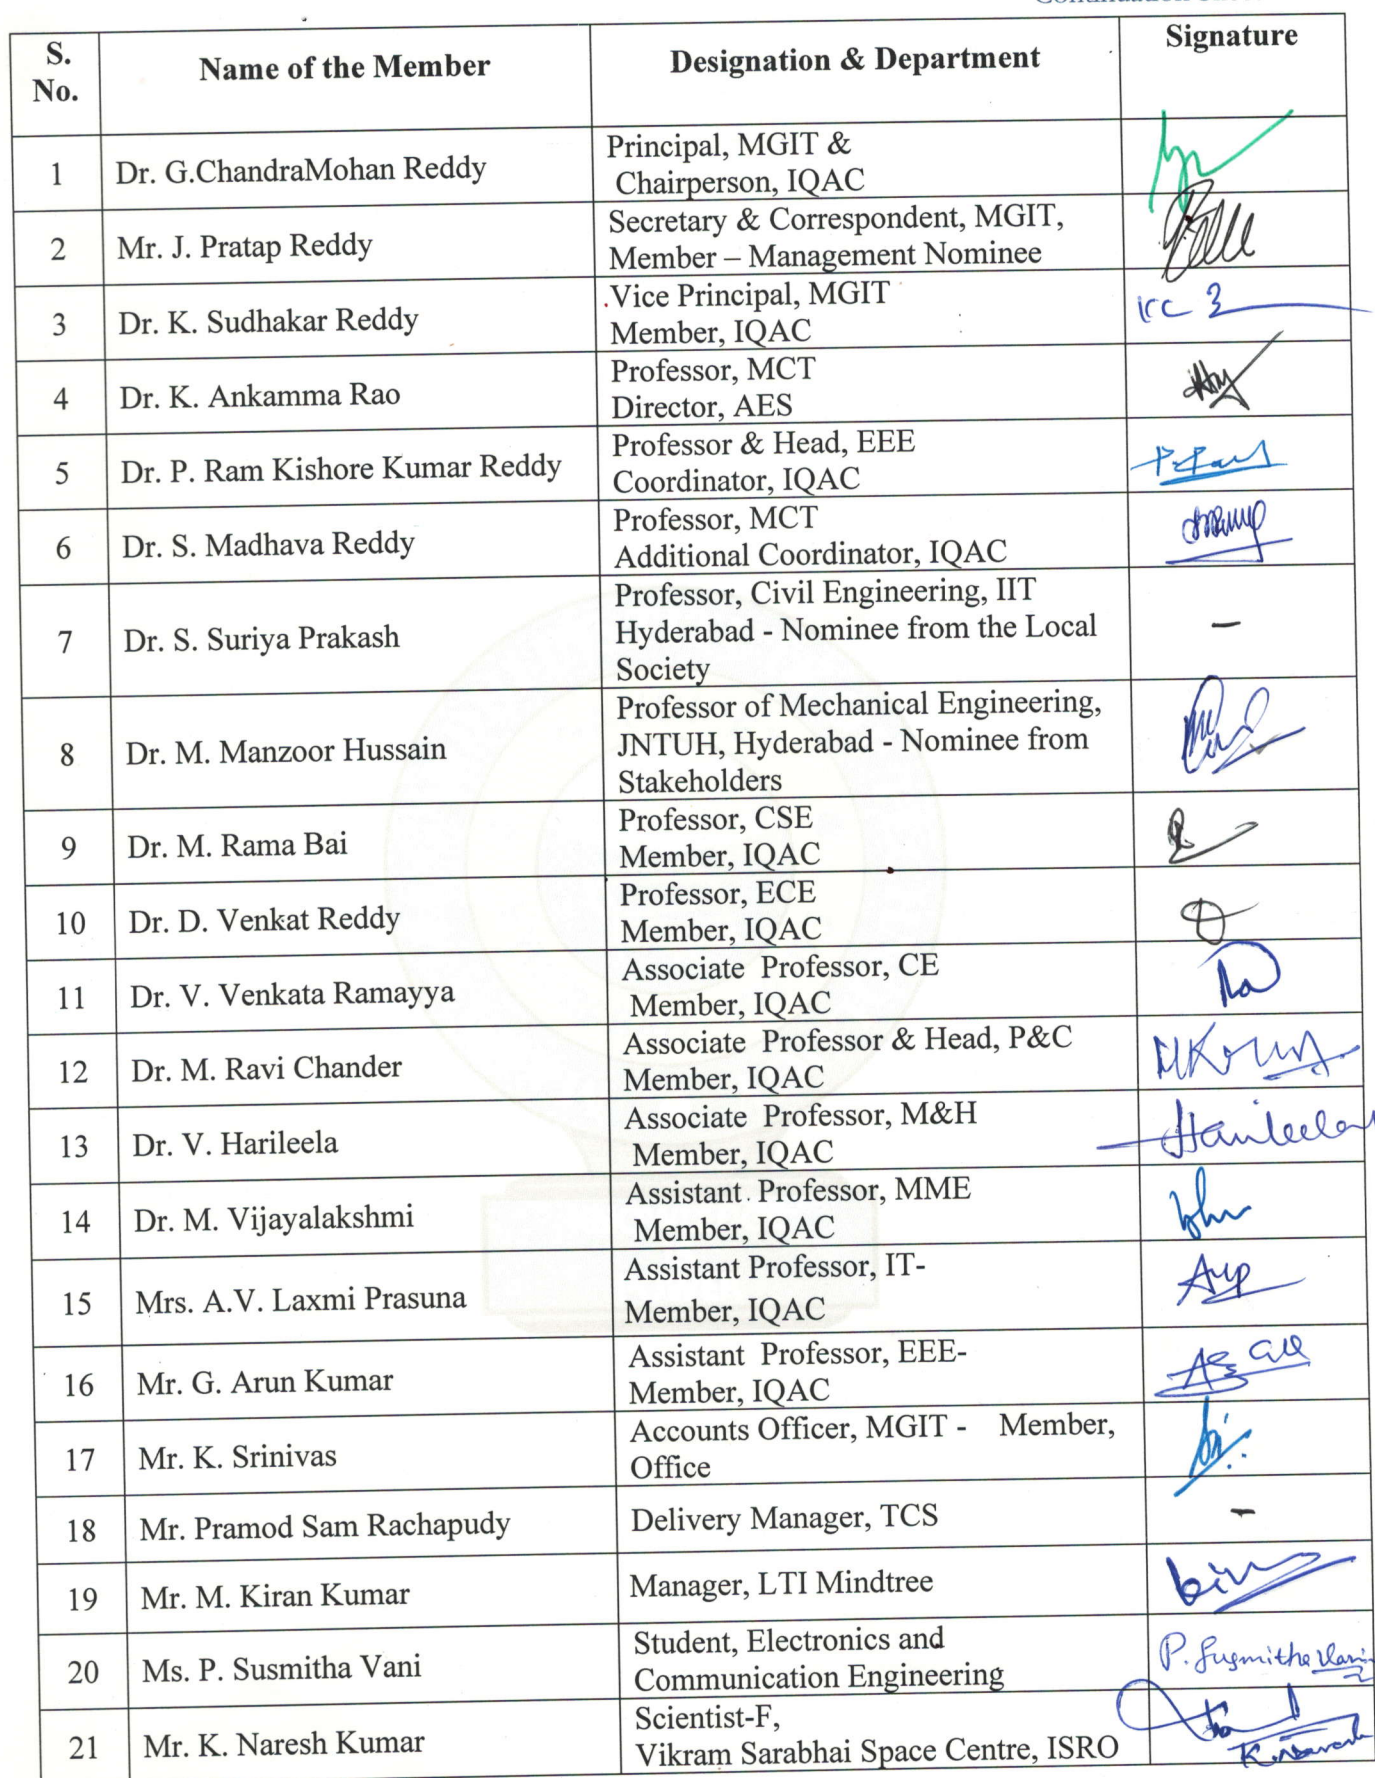 S. No.
Name of the Member
Designation & Department
Signature
1
Dr. G.ChandraMohan Reddy
Principal, MGIT &
Chairperson, IQAC
2
Mr. J. Pratap Reddy
Secretary & Correspondent, MGIT,
Member – Management Nominee
3
Dr. K. Sudhakar Reddy
Vice Principal, MGIT
Member, IQAC
4
Dr. K. Ankamma Rao
Professor, MCT
Director, AES
5
Dr. P. Ram Kishore Kumar Reddy
Professor & Head, EEE
Coordinator, IQAC
6
Dr. S. Madhava Reddy
Professor, MCT
Additional Coordinator, IQAC
7
Dr. S. Suriya Prakash
Professor, Civil Engineering, IIT
Hyderabad - Nominee from the Local
Society
–
8
Dr. M. Manzoor Hussain
Professor of Mechanical Engineering,
JNTUH, Hyderabad - Nominee from
Stakeholders
9
Dr. M. Rama Bai
Professor, CSE
Member, IQAC
10
Dr. D. Venkat Reddy
Professor, ECE
Member, IQAC
11
Dr. V. Venkata Ramayya
Associate Professor, CE
Member, IQAC
12
Dr. M. Ravi Chander
Associate Professor & Head, P&C
Member, IQAC
13
Dr. V. Harileela
Associate Professor, M&H
Member, IQAC
Harileela
14
Dr. M. Vijayalakshmi
Assistant Professor, MME
Member, IQAC
15
Mrs. A.V. Laxmi Prasuna
Assistant Professor, IT-
Member, IQAC
16
Mr. G. Arun Kumar
Assistant Professor, EEE-
Member, IQAC
17
Mr. K. Srinivas
Accounts Officer, MGIT - Member,
Office
18
Mr. Pramod Sam Rachapudy
Delivery Manager, TCS
–
19
Mr. M. Kiran Kumar
Manager, LTI Mindtree
20
Ms. P. Susmitha Vani
Student, Electronics and
Communication Engineering
P. Susmitha Vani
21
Mr. K. Naresh Kumar
Scientist-F,
Vikram Sarabhai Space Centre, ISRO